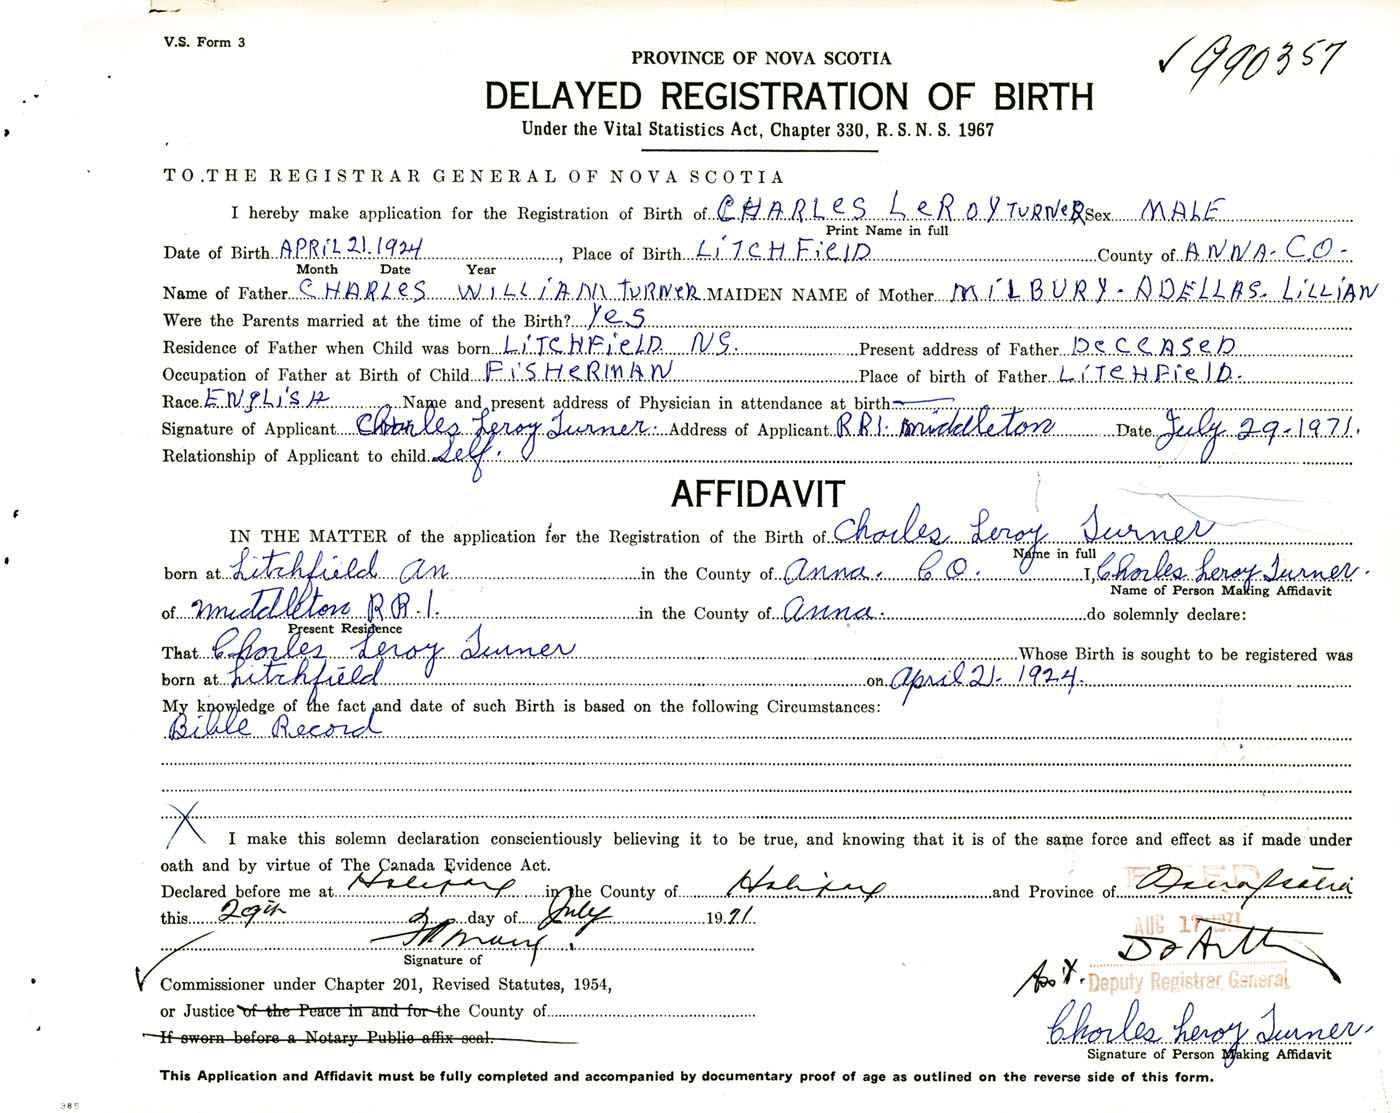 V.S. Form 3
990357
PROVINCE OF NOVA SCOTIA
DELAYED REGISTRATION OF BIRTH
Under the Vital Statistics Act, Chapter 330, R. S. N. S. 1967
TO THE REGISTRAR GENERAL OF NOVA SCOTIA
I hereby make application for the Registration of Birth of CHARLeS LeROY TURNeR Sex MALE
Print Name in full
Date of Birth APRiL 21. 1924, Place of Birth LiTCHFieLD County of ANNA- CO-
Month Date Year
Name of Father CHARLeS WiLLiAM TURNeR MAIDEN NAME of Mother MiLBURY- ADELLAS- LiLLiAN
Were the Parents married at the time of the Birth? YeS
Residence of Father when Child was born LiTCHFieLD NS. Present address of Father DeCEASeD
Occupation of Father at Birth of Child FiSHeRMAN Place of birth of Father LiTCHFieLD-
Race ENgLiSH Name and present address of Physician in attendance at birth —
Signature of Applicant Charles Leroy Turner. Address of Applicant R.R.1. Middleton Date July 29-1971.
Relationship of Applicant to child Self.
AFFIDAVIT
IN THE MATTER of the application for the Registration of the Birth of Charles Leroy Turner
Name in full
born at Litchfield An in the County of Anna. CO. I, Charles Leroy Turner.
Name of Person Making Affidavit
of Middleton R.R.1. in the County of Anna. do solemnly declare:
Present Residence
That Charles Leroy Turner Whose Birth is sought to be registered was
born at Litchfield on April 21. 1924.
My knowledge of the fact and date of such Birth is based on the following Circumstances:
Bible Record
X
I make this solemn declaration conscientiously believing it to be true, and knowing that it is of the same force and effect as if made under
oath and by virtue of The Canada Evidence Act.
Declared before me at Halifax in the County of Halifax and Province of Nova Scotia
FILED
this 29th day of July 1971
AUG 17 1971
Signature of
Ass't. Deputy Registrar General
Commissioner under Chapter 201, Revised Statutes, 1954,
or Justice of the Peace in and for the County of
Charles Leroy Turner.
If sworn before a Notary Public affix seal.
Signature of Person Making Affidavit
This Application and Affidavit must be fully completed and accompanied by documentary proof of age as outlined on the reverse side of this form.
385